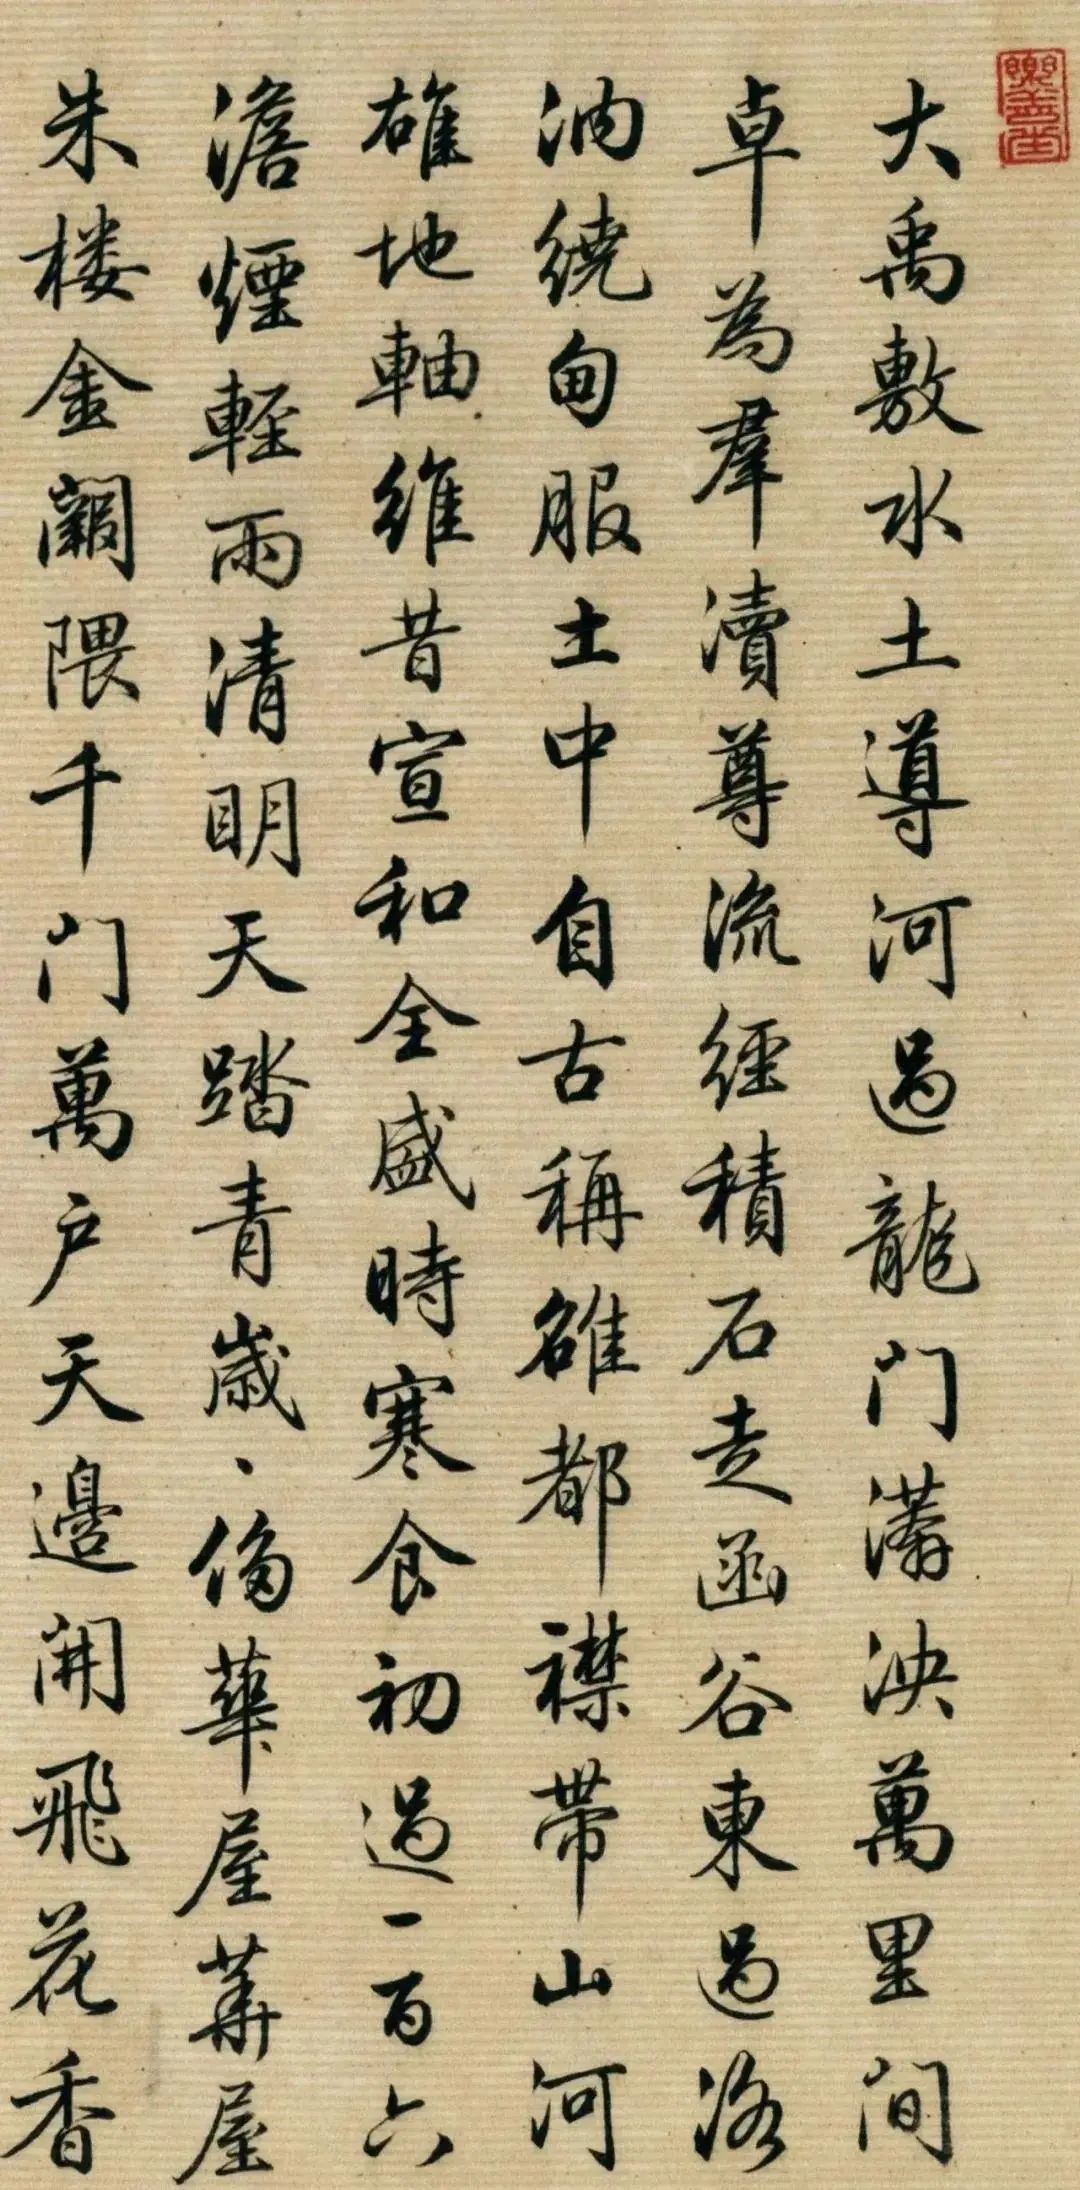 大禹敷水土導河過龍門漭泱萬里間
卓為羣瀆尊流經積石走函谷東過洛
汭繞甸服土中自古稱雒都襟帶山河
雄地軸維昔宣和全盛時寒食初過一百六
澹煙輕雨清明天踏青歲、侈華屋華屋
朱楼金闕隈千门萬户天邊開飛花香